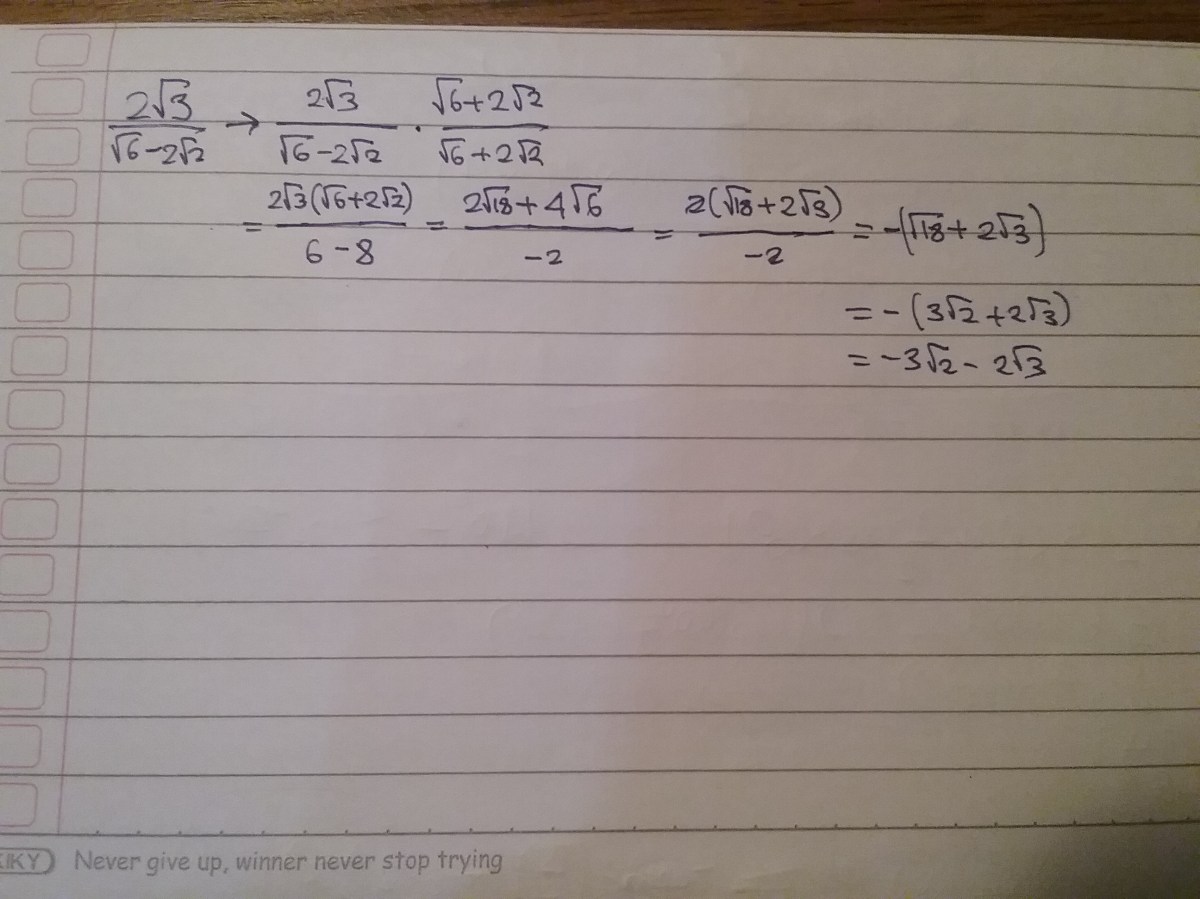 2√3/(√6-2√2) → 2√3/(√6-2√2) · (√6+2√2)/(√6+2√2)
= 2√3(√6+2√2)/(6-8) = (2√18+4√6)/(-2) = 2(√18+2√3)/(-2) = -(√18+2√3)
= -(3√2+2√3)
= -3√2-2√3
KIKY Never give up, winner never stop trying